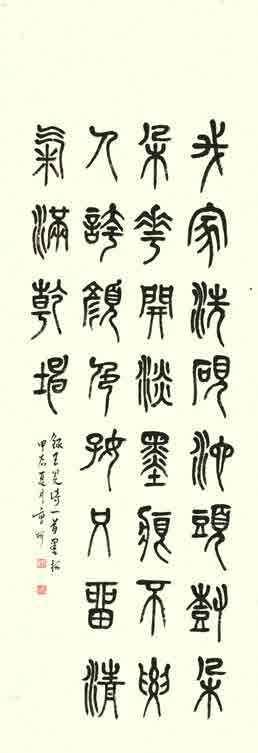 我家洗硯池頭樹朵
朵花開淡墨痕不要
人誇顏色好只留清
氣滿乾坤
錄王冕詩一首墨梅
夏月